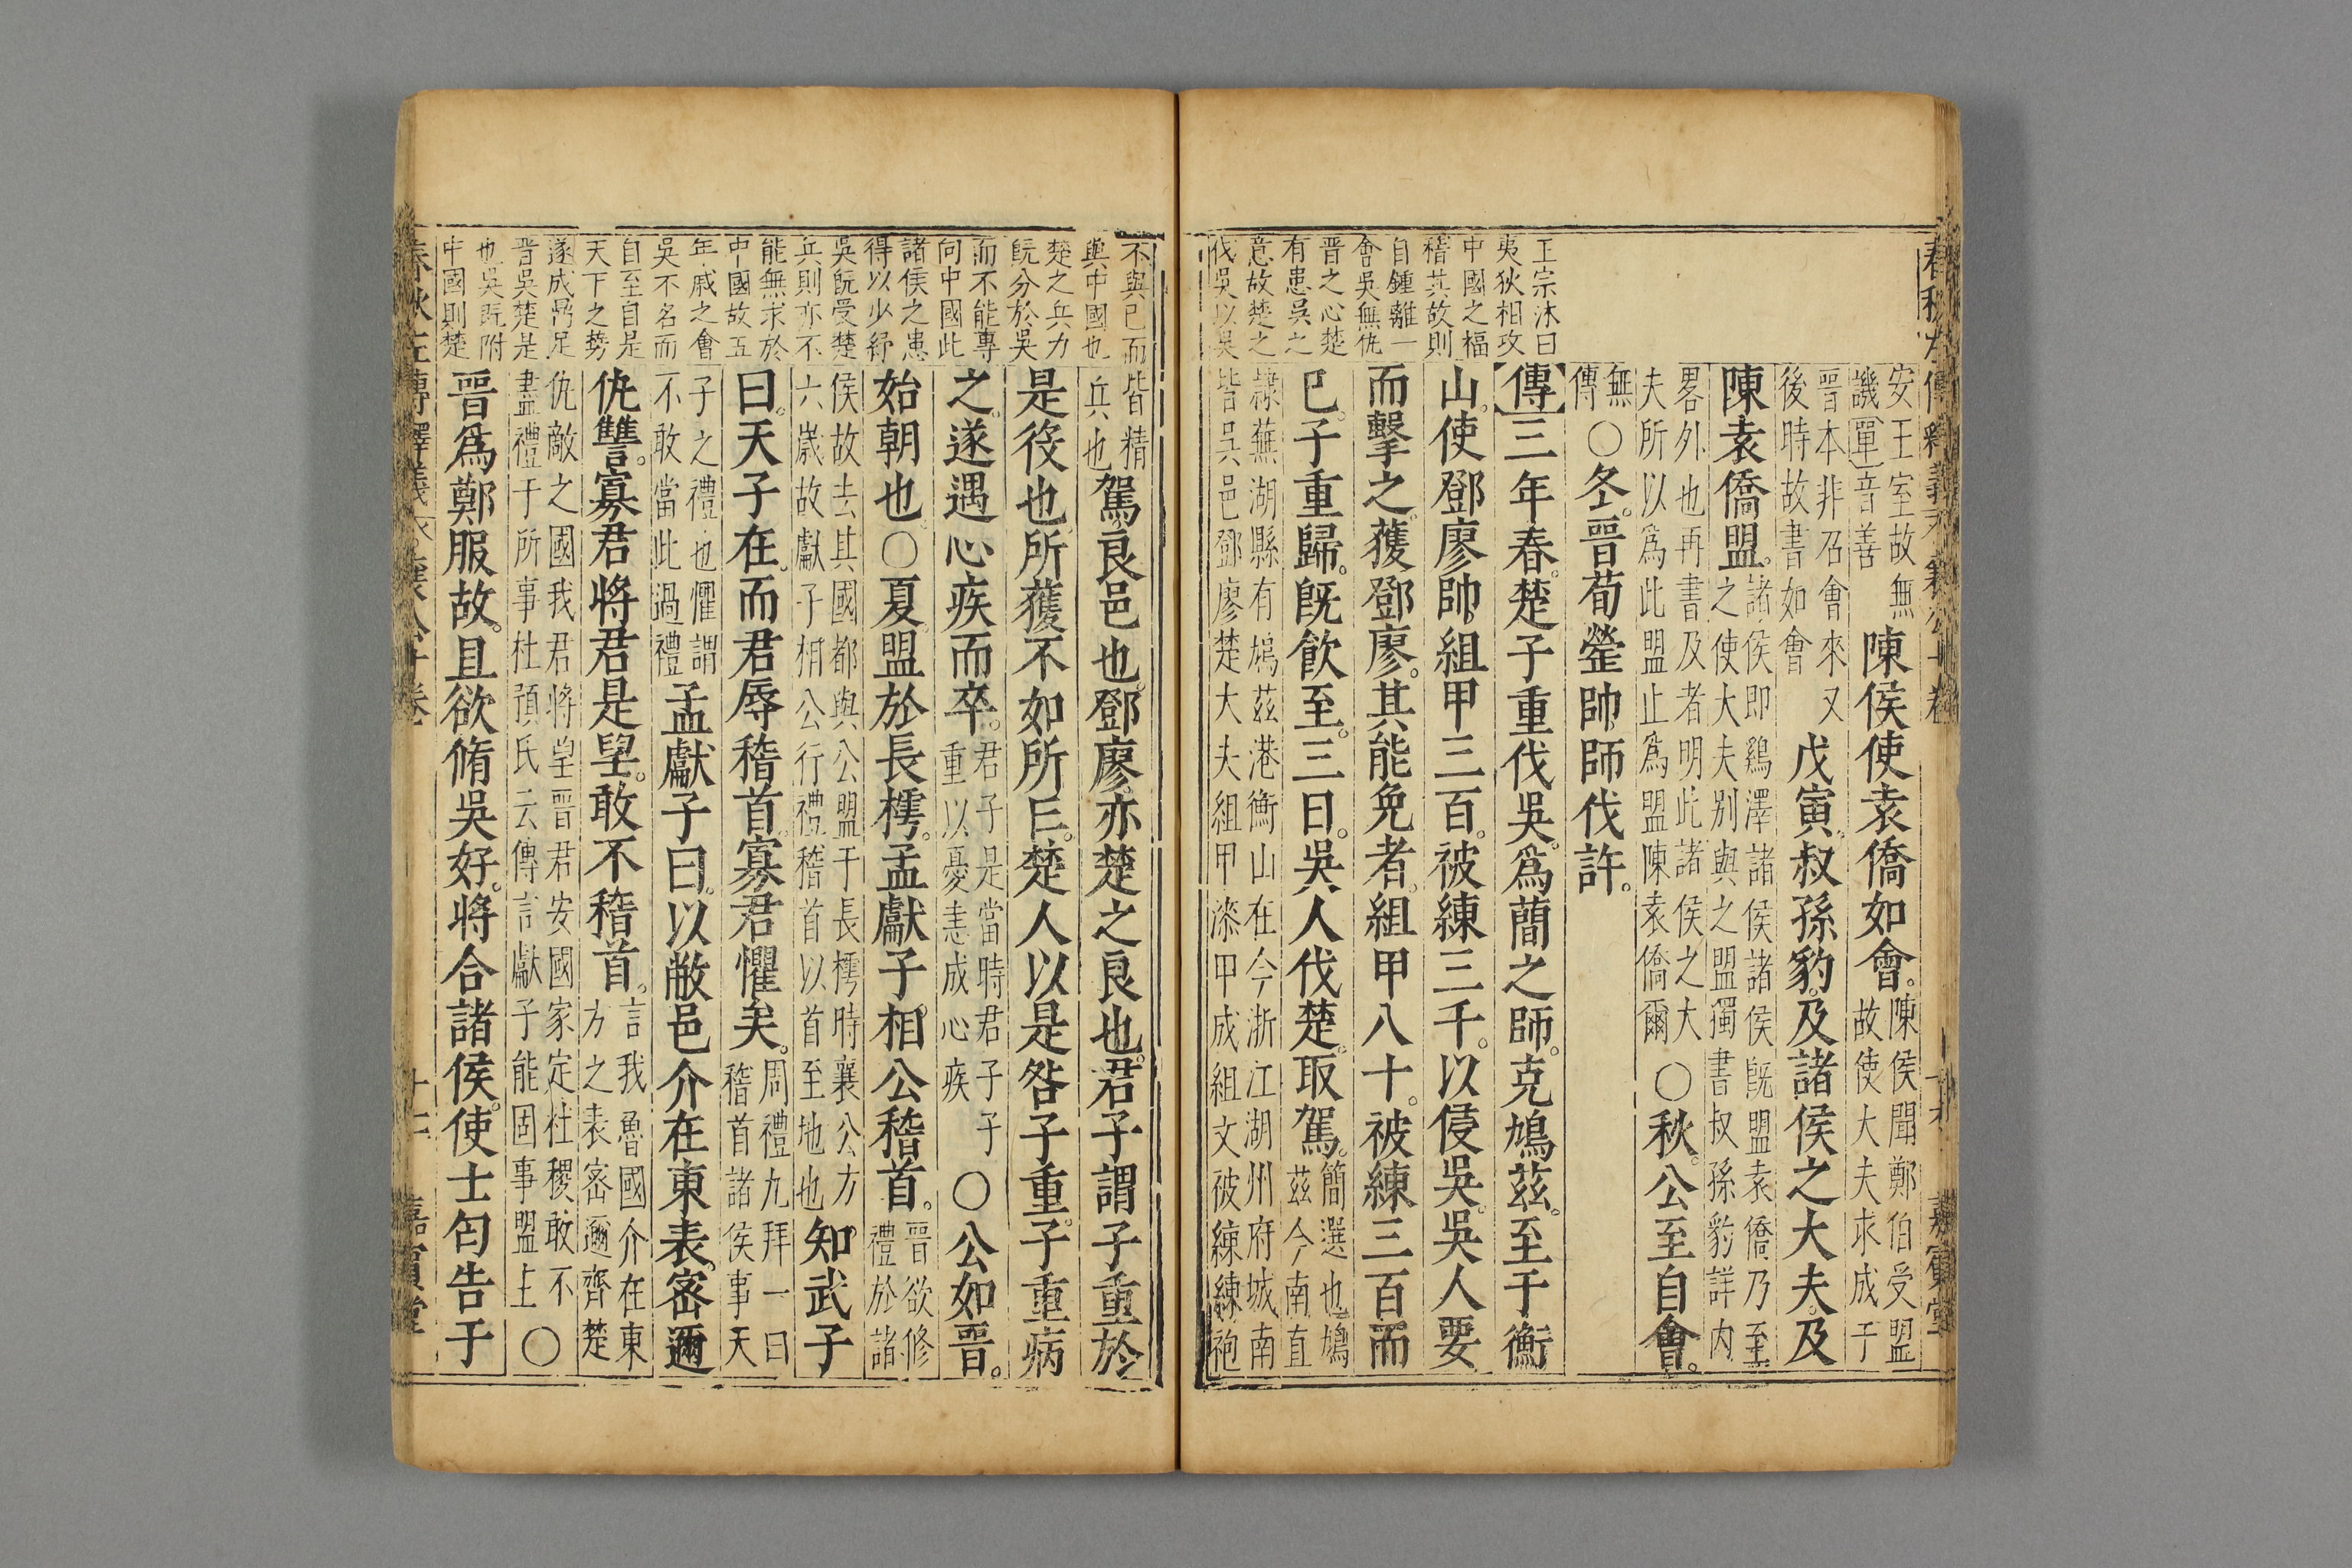 安王室故無譏單音善陳侯使袁僑如會。陳侯聞鄭伯受盟故使大夫求成于
晋本非召會來又後時故書如會戊寅。叔孫豹。及諸侯之大夫。及
陳袁僑盟。諸侯即鷄澤諸侯諸侯旣盟袁僑乃至之使大夫别與之盟獨書叔孫豹詳内
畧外也再書及者明此諸侯之大夫所以爲此盟止爲盟陳袁僑爾○秋。公至自會。
無傳○冬。晋荀罃帥師伐許。
王宗沐曰
夷狄相攻
中國之福
稽其故則
自鍾離一
會吳無仇
晋之心楚
有患吳之
意故楚之
伐吳以吳
傳三年春。楚子重伐吳。爲簡之師。克鳩茲。至于衡
山。使鄧廖帥。組甲三百。被練三千。以侵吳。吳人要
而擊之。獲鄧廖。其能免者。組甲八十。被練三百。而
已。子重歸。旣飲至。三日。吳人伐楚。取駕。簡選也鳩茲今南直
隷蕪湖縣有鳩茲港衡山在今浙江湖州府城南皆吳邑鄧廖楚大夫組甲漆甲成組文被練練袍
不與已而
與中國也
楚之兵力
旣分於吳
而不能專
向中國此
諸侯之患
得以少紓
吳旣受楚
兵則亦不
能無求於
中國故五
年戚之會
吳不名而
自至自是
天下之勢
遂成鼎足
晋吳楚是
也吳旣附
中國則楚
皆精兵也駕。良邑也。鄧廖。亦楚之良也。君子謂子重於
是役也。所獲不如所亡。楚人以是咎子重。子重病
之。遂遇心疾而卒。君子是當時君子子重以憂恚成心疾○公如晋。
始朝也。○夏。盟於長樗。孟獻子。相公稽首。晋欲修禮於諸
侯故去其國都與公盟于長樗時襄公方六歲故獻子相公行禮稽首以首至地也知武子
曰。天子在。而君辱稽首。寡君懼矣。周禮九拜一曰稽首諸侯事天
子之禮也懼謂不敢當此過禮孟獻子曰。以敝邑介在東表。密邇
仇讐。寡君將君是望。敢不稽首。言我魯國介在東方之表密邇齊楚
仇敵之國我君將望晋君安國家定社稷敢不盡禮于所事杜預氏云傳言獻子能固事盟主○
晋爲鄭服故。且欲脩吳好。將合諸侯。使士匄告于